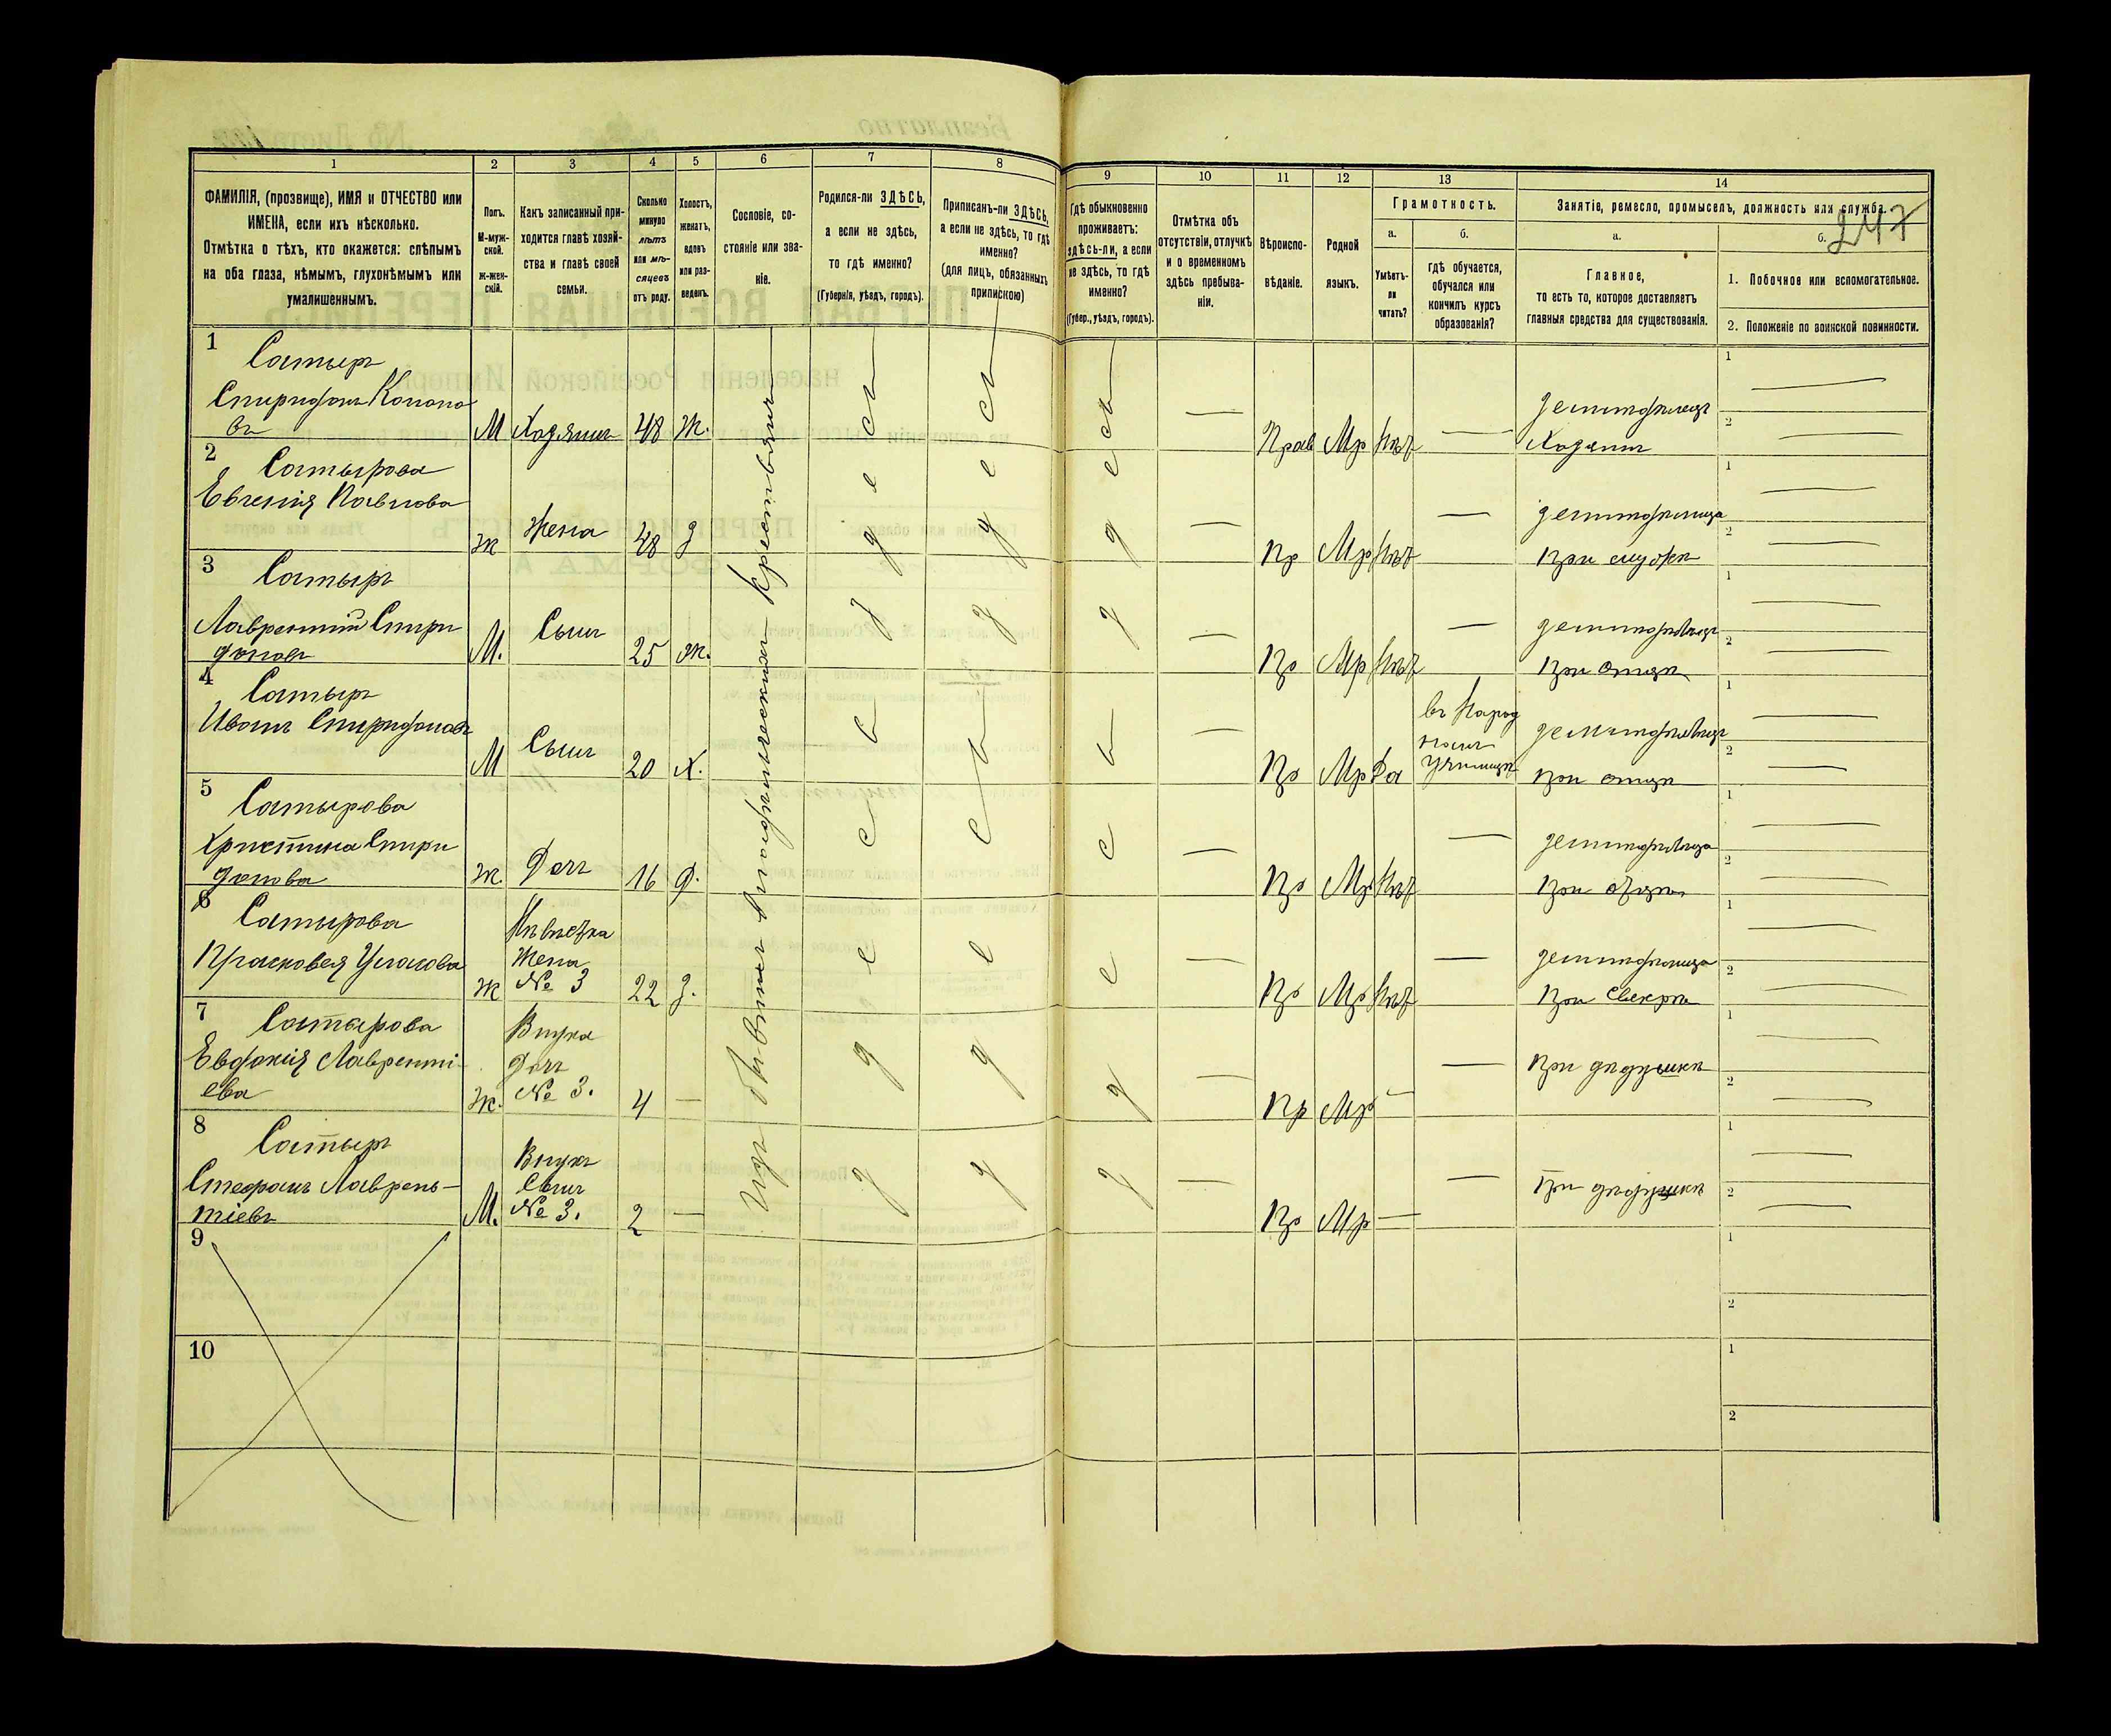 247
1 2 3 4 5 6 7 8 9 10 11 12 13 14
ФАМИЛІЯ, (прозвище), ИМЯ и ОТЧЕСТВО или
ИМЕНА, если ихъ нѣсколько.
Отмѣтка о тѣхъ, кто окажется: слѣпымъ
на оба глаза, нѣмымъ, глухонѣмымъ или
умалишеннымъ.
Полъ.
М-муж-
ской.
Ж-жен-
скій.
Какъ записанный при-
ходится главѣ хозяй-
ства и главѣ своей
семьи.
Сколько
минуло
лѣтъ
или мѣ-
сяцевъ
отъ роду.
Холостъ,
женатъ,
вдовъ
или раз-
веденъ.
Сословіе, со-
стояніе или зва-
ніе.
Родился-ли ЗДѢСЬ,
а если не здѣсь,
то гдѣ именно?
(Губернія, уѣздъ, городъ).
Приписанъ-ли ЗДѢСЬ,
а если не здѣсь, то гдѣ
именно?
(для лицъ, обязанныхъ
припискою)
Гдѣ обыкновенно
проживаетъ:
здѣсь-ли, а если
не здѣсь, то гдѣ
именно?
(Губер., уѣздъ, городъ).
Отмѣтка объ
отсутствіи, отлучкѣ
и о временномъ
здѣсь пребыва-
ніи.
Вѣроиспо-
вѣданіе.
Родной
языкъ.
Грамотность.
а.
Умѣетъ-
ли
читать?
б.
Гдѣ обучается,
обучался или
кончилъ курсъ
образованія?
Занятіе, ремесло, промыселъ, должность или служба.
а.
Главное,
то есть то, которое доставляетъ
главныя средства для существованія.
б.
1. Побочное или вспомогательное.
2. Положеніе по воинской повинности.
1
Сатыръ
Спиридонъ Конона
въ
М Хозяинъ 48 Ж.
здѣсь здѣсь здѣсь
— Прав Мр Нѣт —
Хозяинъ
2
Сатырова
Евгенія Павлова
Ж Жена 48 З
— Пр Мр Нѣт —
При мужѣ
3
Сатыръ
Лаврентій Спири
доновъ
М. Сынъ 25 Ж.
— Пр Мр Нѣт —
При отцѣ
4
Сатыръ
Иванъ Спиридоновъ
М Сынъ 20 Х.
— Пр Мр Да
въ Народ
номъ
училищѣ
при отцѣ
5
Сатырова
Христина Спири
донова
Ж. Дочь 16 Д.
— Пр Мр Нѣт —
при отцѣ
6
Сатырова
Прасковея
Ж
Невѣстка
Жена
№ 3
22 З.
— Пр Мр Нѣт —
при свекрѣ
7
Сатырова
Евдокія Лавренті-
ева
Ж.
Внука
Дочь
№ 3.
4 —
— Пр Мр — —
При дѣдушкѣ
8
Сатыръ
Стефанъ Лаврень-
тіевъ
М.
Внукъ
Сынъ
№ 3.
2 —
— Пр Мр — —
При дѣдушкѣ
9
10